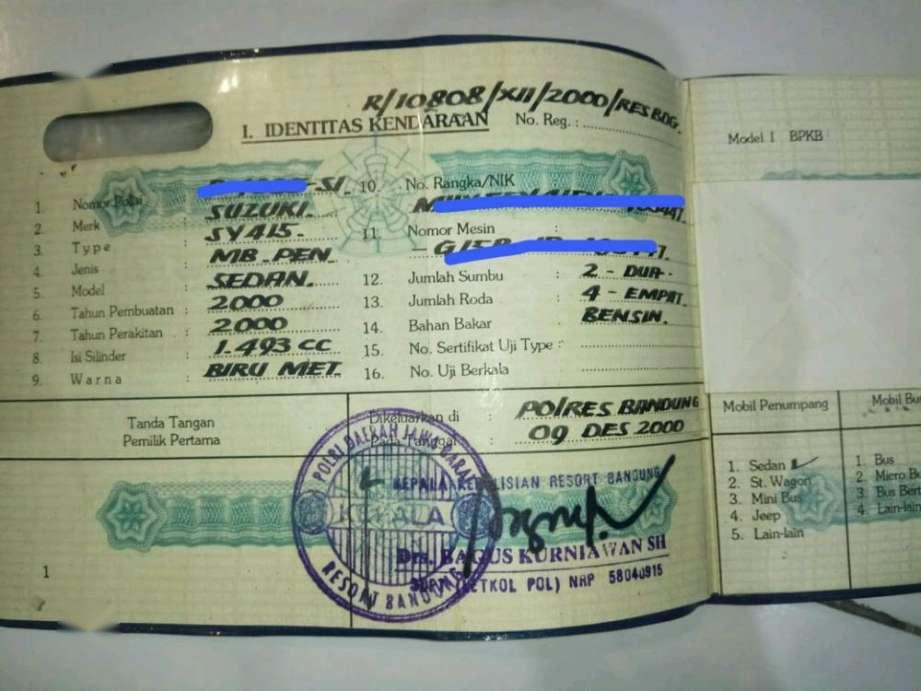 R/10808/XII/2000/RES BDG.
I. IDENTITAS KENDARAAN No. Reg. :
1. Nomor Polisi : -SI.
2. Merk : SUZUKI.
3. Type : SY415.
4. Jenis : MB. PEN.
5. Model : SEDAN.
6. Tahun Pembuatan : 2000
7. Tahun Perakitan : 2000
8. Isi Silinder : 1.493 CC
9. Warna : BIRU MET.
10. No. Rangka/NIK
11 Nomor Mesin :
12. Jumlah Sumbu : 2 - DUA.
13. Jumlah Roda : 4 - EMPAT.
14. Bahan Bakar : BENSIN.
15. No. Sertifikat Uji Type :
16. No. Uji Berkala :
Tanda Tangan
Pemilik Pertama
Dikeluarkan di : POLRES BANDUNG
Pada Tanggal : 09 DES 2000
POLRI DAERAH JAWA BARAT
KEPALA KEPOLISIAN RESORT BANDUNG
KEPALA
RESORT BANDUNG
Drs. BAGUS KURNIAWAN SH
(LETKOL POL) NRP 58040915
1
Model I BPKB
Mobil Penumpang
1. Sedan
2. St. Wagon
3. Mini Bus
4. Jeep
5. Lain-lain
Mobil
1. Bus
2. Micro
3. Bus
4. Lain-lain